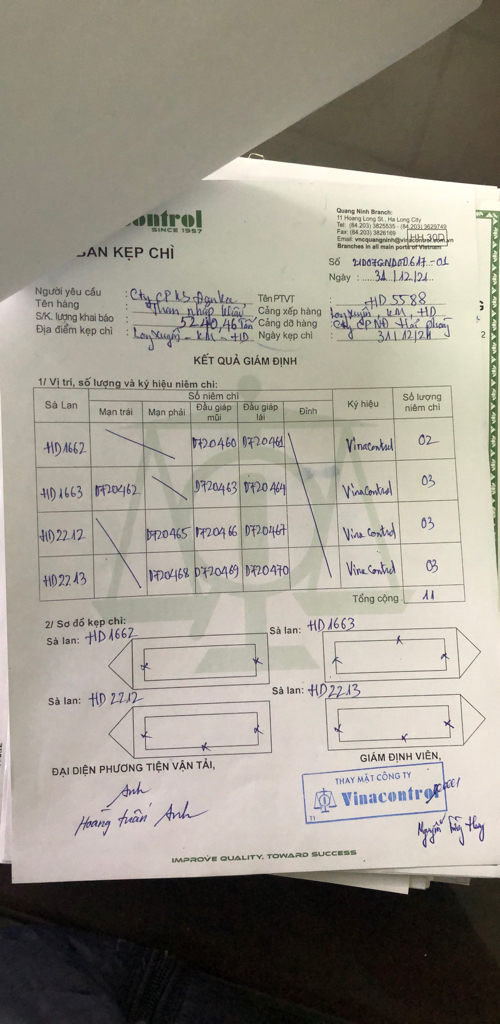 ontrol
SINCE 1957
Quang Ninh Branch:
11 Hoang Long St., Ha Long City
Tel: (84.203) 3825535 - (84.203) 3629749
Fax: (84.203) 3826169
Email: vncquangninh@vinacontrol.com.vn
Branches in all main ports of Vietnam
HH 30D
BẢN KẸP CHÌ
Số 21D07GND00617-01
Ngày : 31/12/21
Người yêu cầu : Cty CPKS
Tên hàng : Than nhập khẩu
S/K. lượng khai báo : 5240,46 Tấn
Địa điểm kẹp chì : - KM - HD
Tên PTVT : HD5588
Cảng xếp hàng : KM, HD
Cảng dỡ hàng : Cty CPNĐ Hải Phòng
Ngày kẹp chì : 31/12/21
KẾT QUẢ GIÁM ĐỊNH
1/ Vị trí, số lượng và ký hiệu niêm chì:
Sà Lan Số niêm chì Ký hiệu Số lượng niêm chì
Mạn trái Mạn phải Đầu giáp mũi Đầu giáp lái Đỉnh
HD1662 D720460 D720461 Vinacontrol 02
HD1663 D720462 D720463 D720464 Vinacontrol 03
HD2212 D720465 D720466 D720467 Vinacontrol 03
HD2213 D720468 D720469 D720470 Vinacontrol 03
Tổng cộng 11
2/ Sơ đồ kẹp chì:
Sà lan: HD1662 Sà lan: HD1663
Sà lan: HD2212 Sà lan: HD2213
ĐẠI DIỆN PHƯƠNG TIỆN VẬN TẢI, GIÁM ĐỊNH VIÊN,
THAY MẶT CÔNG TY
Vinacontrol
T1
Anh
Hoàng tuấn Anh
Nguyễn Huy
IMPROVE QUALITY, TOWARD SUCCESS